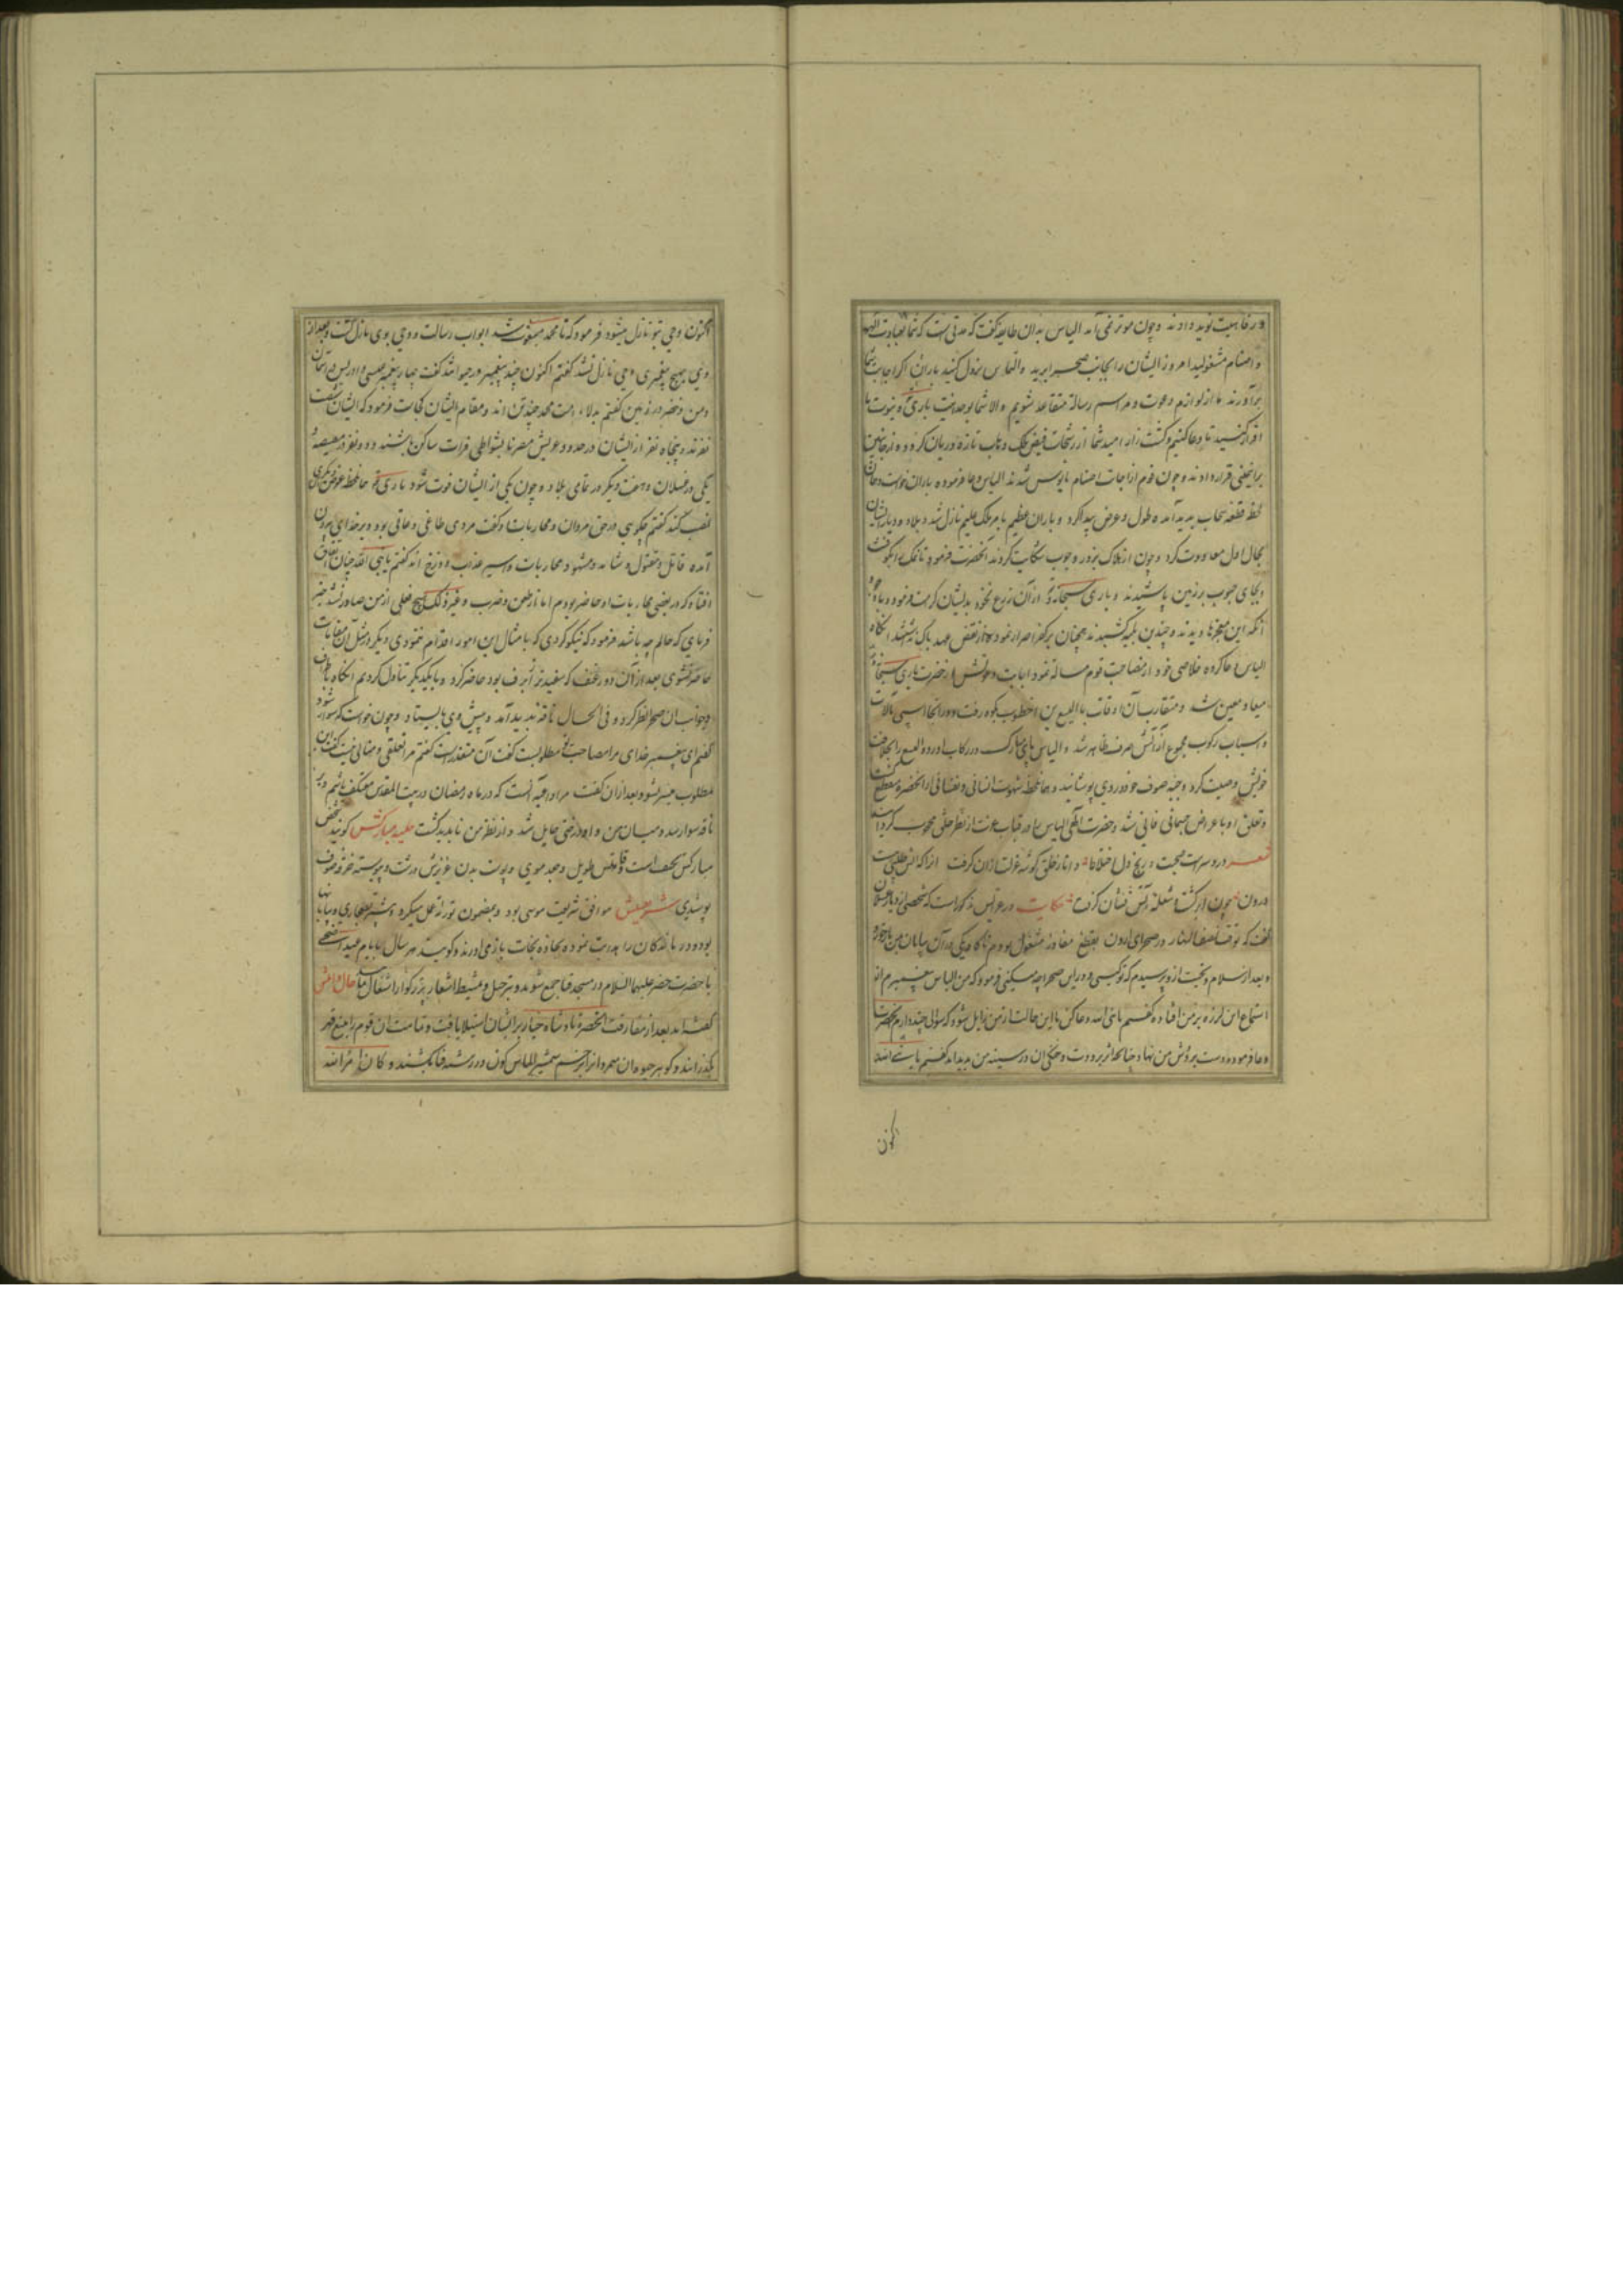 و رفاهیت نوید دادند و چون موثر نمی آمد الیاس بدان طایفه گفت که مدتی است که شما بعبادت الهه
و اصنام مشغولید امروز ایشان را بجانب صحرا برید و التماس نزول کنید باران اگر اجابت شما
برآورند ما از لوازم دعوت و مراسم رسالة متقاعد شویم و الا شما بوحدانیت باری و نبوت ما
اقرار کنید تا دعا کنیم و کشت زار امید شما از رشحات فیض ملک وهاب تازه و ریان گردد و از جانبین
براینمعنی قرار دادند و چون قوم از اجابت اصنام مایوس شدند الیاس دعا فرموده باران خواست و همان
لحظه قطعه سحاب پدید آمده طول و عرض پیدا کرد و باران عظیم بامر ملک علیم نازل شد و بلاد و دیار ایشان
بحال اول معاودت کرد و چون از هلاک بزور و حبوب شکایت کردند آنحضرت فرمود تا نمک
و بجای حبوب بر زمین پاشیدند و باری سبحانه و از آن زرع نخود بدیشان کرامت فرمود و با وجود
آنکه این معجزها دیدند و چندین بلیه کشیدند همچنان بر کفر اصرار نموده از نقض عهد باک نداشتند آنگاه
الیاس دعا کرده خلاصی خود از مصاحبت قوم مسالة نمود اجابت دعوتش از حضرت باری سبحانه
میعاد معین شد و متقارب آن اوقات با الیسع بن اخطوب بکوه رفت و در آنجا اسپی با آلات
و اسباب رکوب مجموع از آتش صرف ظاهر شد و الیاس پای مبارک در رکاب آورد و الیسع را بخلافت
خویش وصیت کرد و جبه صوف خود در وی پوشانید و همان لحظه شهوت انسانی و نفسانی از آنحضرة منقطع گشت
و تعلق او با عراض جسمانی فانی شد و حضرت الهی الیاس را در قباب عزت از نظر خلق محجوب گردانید
شعر در دوسراست محبت و رنج دل اختلاط و انا ز خلق گوشه عزلت ازان گرفت
درون چون از کشت شعله آتش فشان گرفت حکایت در عرایس مذکور است که شخصی از دیار عسقلان
گفت که بوقت نصف النهار در صحرای اردن بقطع مفاوز مشغول بودم ناگاه یکی در آن بیابان بمن بازخورد
و بعد از سلام و تحیت از و پرسیدم که تو کیستی و در این صحرا چه میکنی فرمود که من الیاس پیغمبرم از
استماع این لرزه بر من افتاده گفتم یا نبی الله دعا کن تا این حالت از من زایل شود که سوالی چند دارم آنحضرت
دعا فرموده دست بر دوش من نهاد چنانچه اثر برودت و خنکی آن در سینه من پدید آمد گفتم یا نبی الله
اکنون
اکنون وحی بتو نازل میشود فرمود که تا محمد مبعوث شد ابواب رسالت و وحی بوی نازل گشت و بعد از
وی بهیچ پیغمبری وحی نازل نشد گفتم اکنون چند پیغمبر در حیوة اند گفت چهار پیغمبر عیسی و ادریس در آسمان
و من و خضر در زمین گفتم بدلاء امت محمد چندتن اند و مقام ایشان کجاست فرمود که ایشان شصت
نفرند و پنجاه نفر از ایشان در حدود عریش مصر تا بشواطی فرات ساکن باشند و دو نفر در مصیصه
یکی در عسقلان و هفت دیگر در تمامی بلاد و چون یکی از ایشان فوت شود باری حافظه عوض دیگری
نصب کند گفتم چکویی در حق مروان و محاربات او گفت مردی طاغی و عاتی بود و بر خدای بیرون
آمده قاتل و مقتول و شاهد و مشهود محاربات او اسیر عذاب دوزخ اند گفتم یا نبی الله چنان اتفاق
افتاد که در بعضی محاربات او حاضر بودم اما از طعن و ضرب و غیر ذلک هیچ فعلی از من صادر نشد
فرمای که حالم چه باشد فرمود که نیکو کردی که بامثال این امور اقدام ننمودی دیگر در مثل آن مقامات
حاضر نشوی بعد از آن دو رغیف که سفیدتر از برف بود حاضر کرد و با یکدیگر تناول کردیم آنگاه باطراف
و جوانب ان صحرا نظر کرد و فی الحال ناقه پدید آمد و پیش وی بایستاد و چون خواست که سوار شود
گفتم ای پیغمبر خدای مرا مصاحبت تو مطلوبست گفت آن متعذر است گفتم مرا تعلقی و عیالی نیست گفت این
مطلوب میسر نشود بعد ازان گفت مرا داعیه آنست که در ماه رمضان در بیت المقدس معتکف باشم و بر
ناقه سوار شد و میان من و او درختی حایل شد و از نظر من ناپدید گشت حلیه مبارکش گویند شخص
مبارکش نحیف است و قامتش طویل و جعد موی و پوست بدن عزیزش درشت و پیوسته خرقه صوف
پوشیدی شریعتش موافق شریعت موسی بود و بمضمون توریة عمل میکرد و بیشتر صحاری و بیابانها
بودو درماندگان را هدایت نموده بجاده نجات باز می آورند و گویند هر سال بایام عید اضحی
با حضرت خضر علیهما السلام در مسجد قبا جمع شوند و بترجیل و تمشیط اشعار بزرگوار اشتغال نمایند حال امتش
گفته اند بعد از مفارقت آنحضرة پادشاه جبار بر ایشان استیلا یافت و تمامت ان قوم را بتیغ قهر
بگذرانند و گوهر حیوة ان در رشته فنا بکشند و کان امر الله